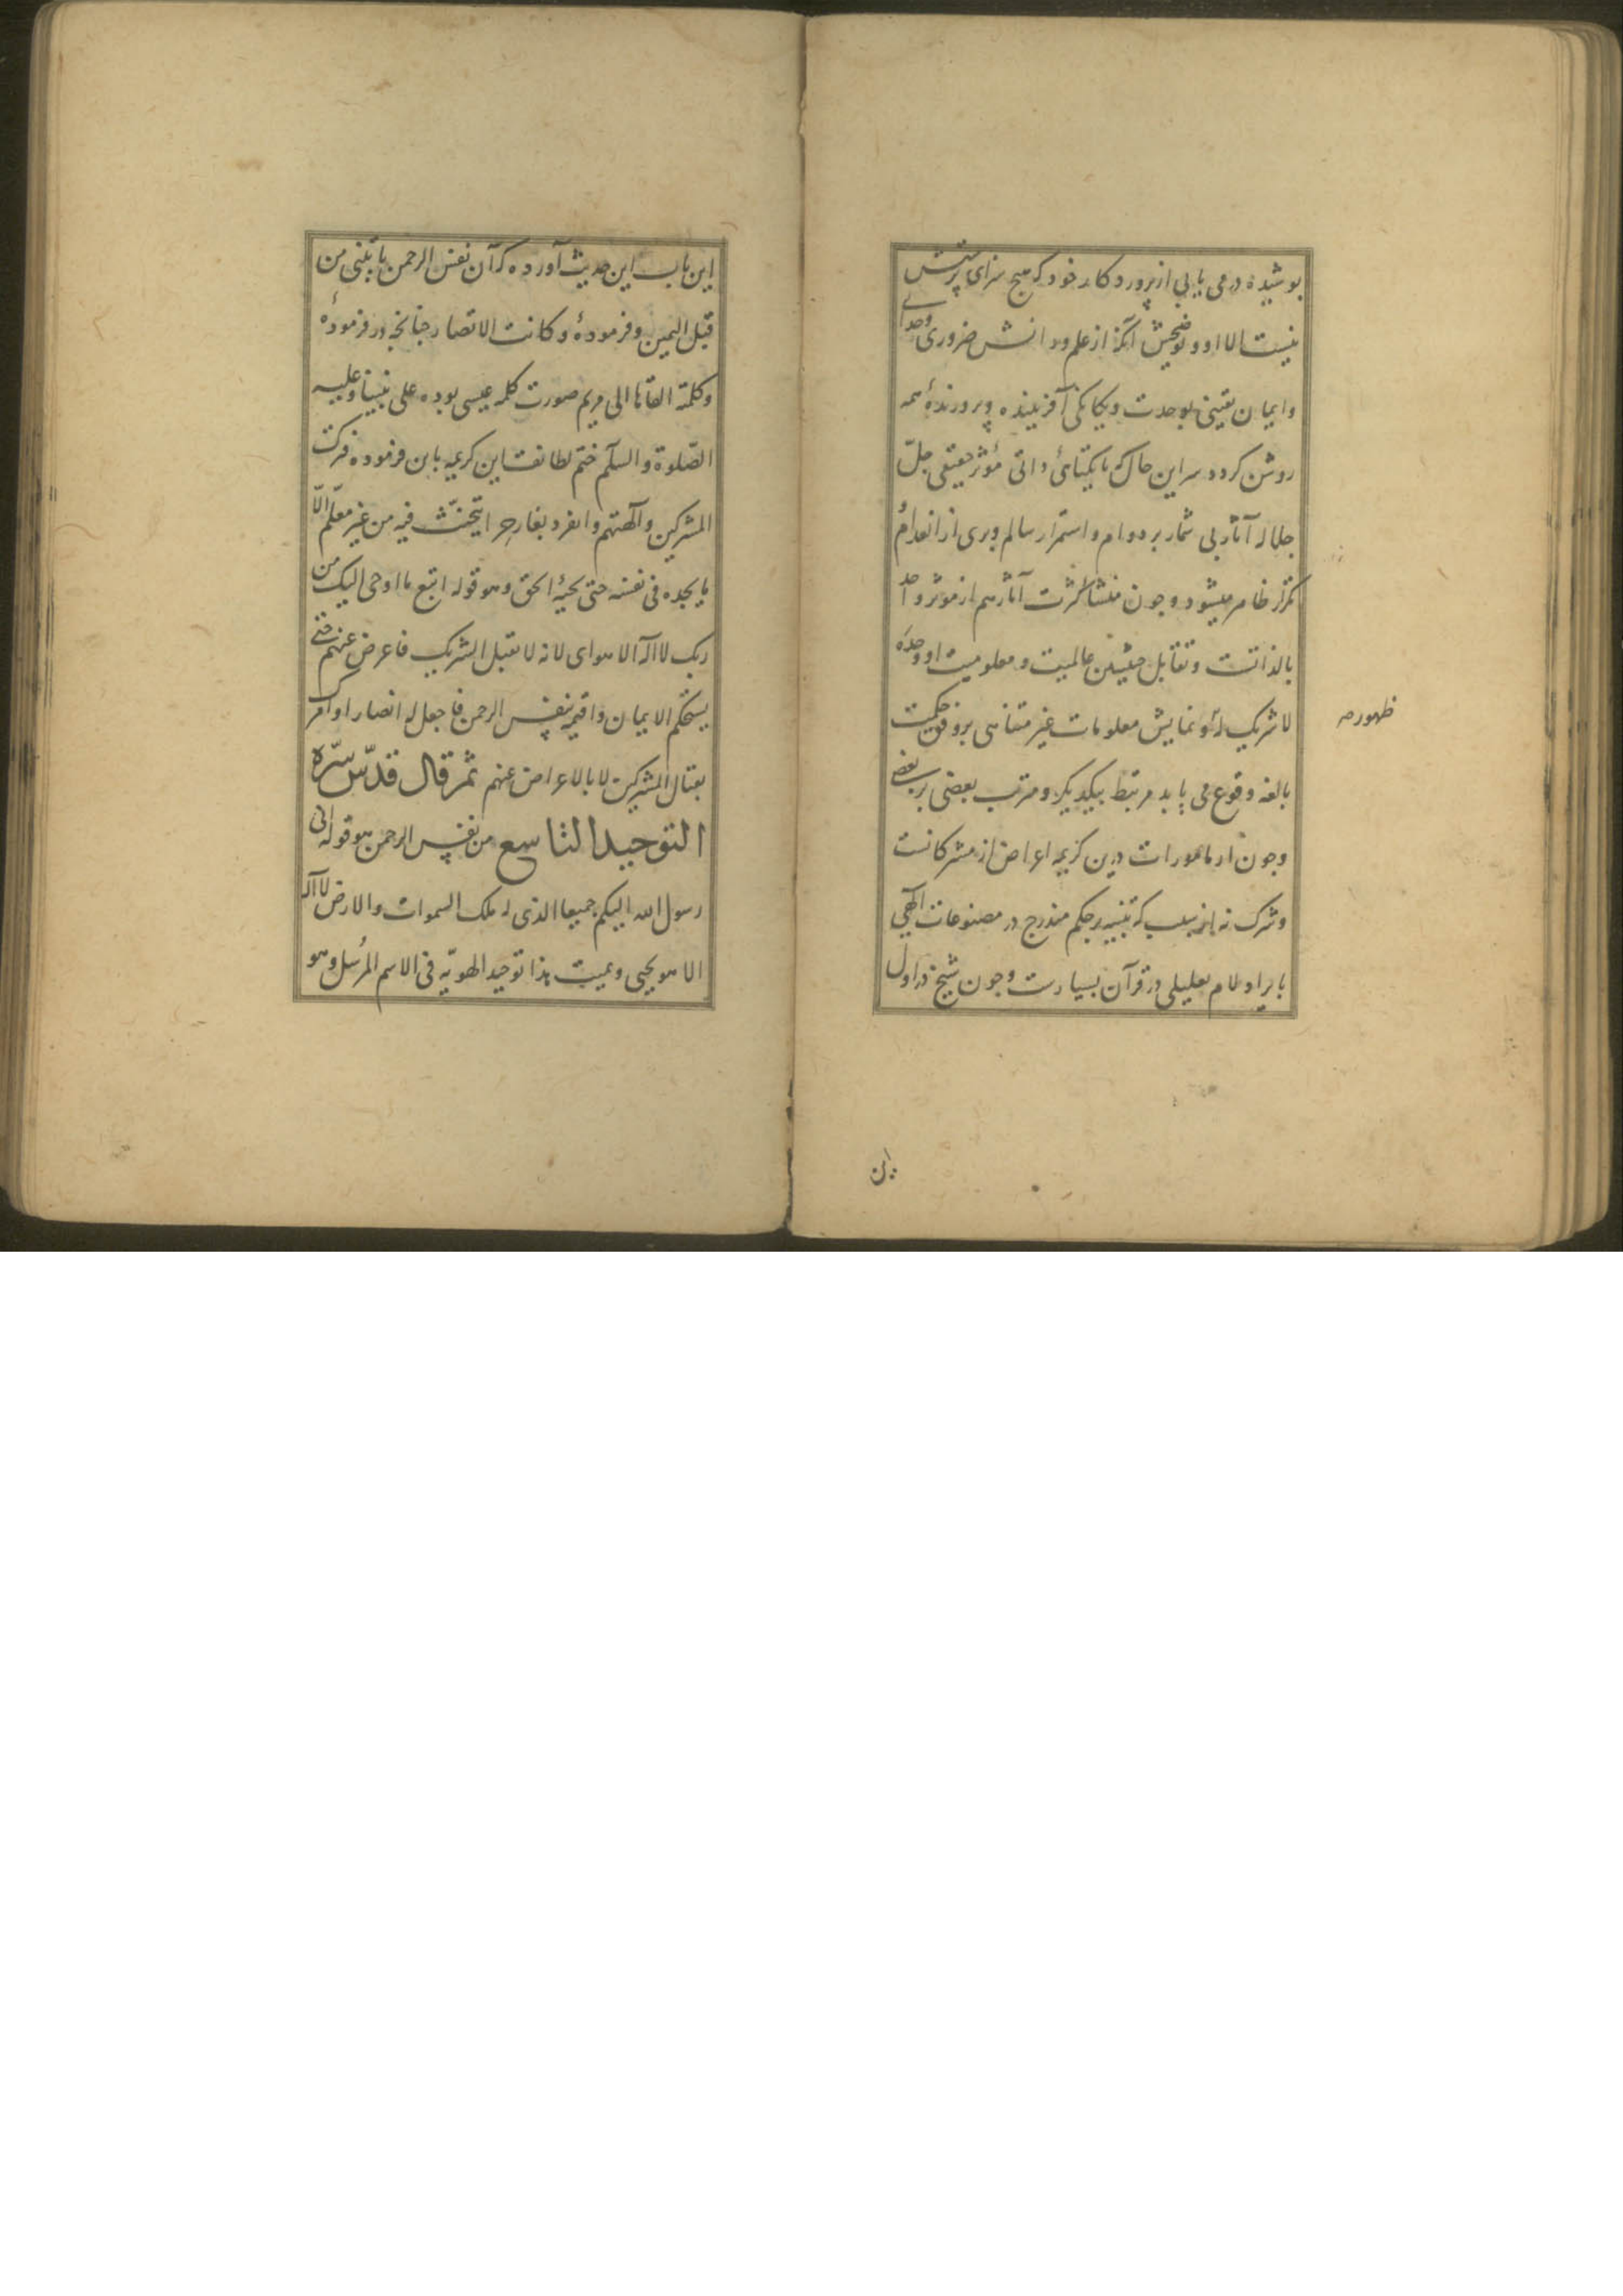 پوشیده در می یابی از پروردکار خود که هیچ سزای پرستش
نیست الا او و توضیحش آنکه از علم و دانش ضروری وجدانی
و ایمان یقینی بوحدت و یکانکی آفریننده و پرورندهٔ همه
روشن کردد سر این حال که با یکتائی ذاتی مؤثر حقیقی جلّ
جلاله آثار بی شمار بر دوام و استمرار سالم و بری از انعدام و
تکرار ظاهر میشود و چون منشا کثرت آثار هم از مؤثر واحد
بالذاتست و تقابل حیثیتین عالمیت و معلومیت او وحده
لا شریک له و نمایش معلومات غیر متناهی بر وفق حکمت
ظهور
بالغه وقوع می یابد مرتبط بیکدیکر و مترتب بعضی بر بعضی
و چون از مامورات درین کریمه اعراض از مشرکانست
و شرک نه از سبب که تنبیه بر حکم مندرج در مصنوعات الهی
بایراد لام تعلیلی در قرآن بسیارست و چون شیخ در اول
این
این باب این حدیث آورده که آن نفس الرحمن یاتینی من
قبل الیمن و فرمودهٔ و کانت الانصار چنانچه در فرمودهٔ
و کلمته القاها الی مریم صورت کلمه عیسی بوده علی نبینا و علیه
الصّلوة و السلام ختم لطائف این کریمه باین فرموده فترکت
المشرکین و آلهتهم و انفرد بغار حرا یتحنّث فیه من غیر معلّم الاّ
ما یجده فی نفسه حتی یجیهٔ الحق و هو قوله اتبع ما اوحی الیک من
ربک لا اله الا هو ای لانه لا یقبل الشریک فاعرض عنهم حتی
یستحکم الایمان و اقیمه بنفس الرحمن فاجعل له انصارا و آمر
بقتال المشرکین لا بالاعراض عنهم ثم قال قدّس سرّه
التوحید التاسع من نفس الرحمن هو قوله انی
رسول الله الیکم جمیعا الذی له ملک السموات و الارض لا اله
الا هو یحیی و یمیت هذا توحید الهویّه فی الاسم المرسل و هو